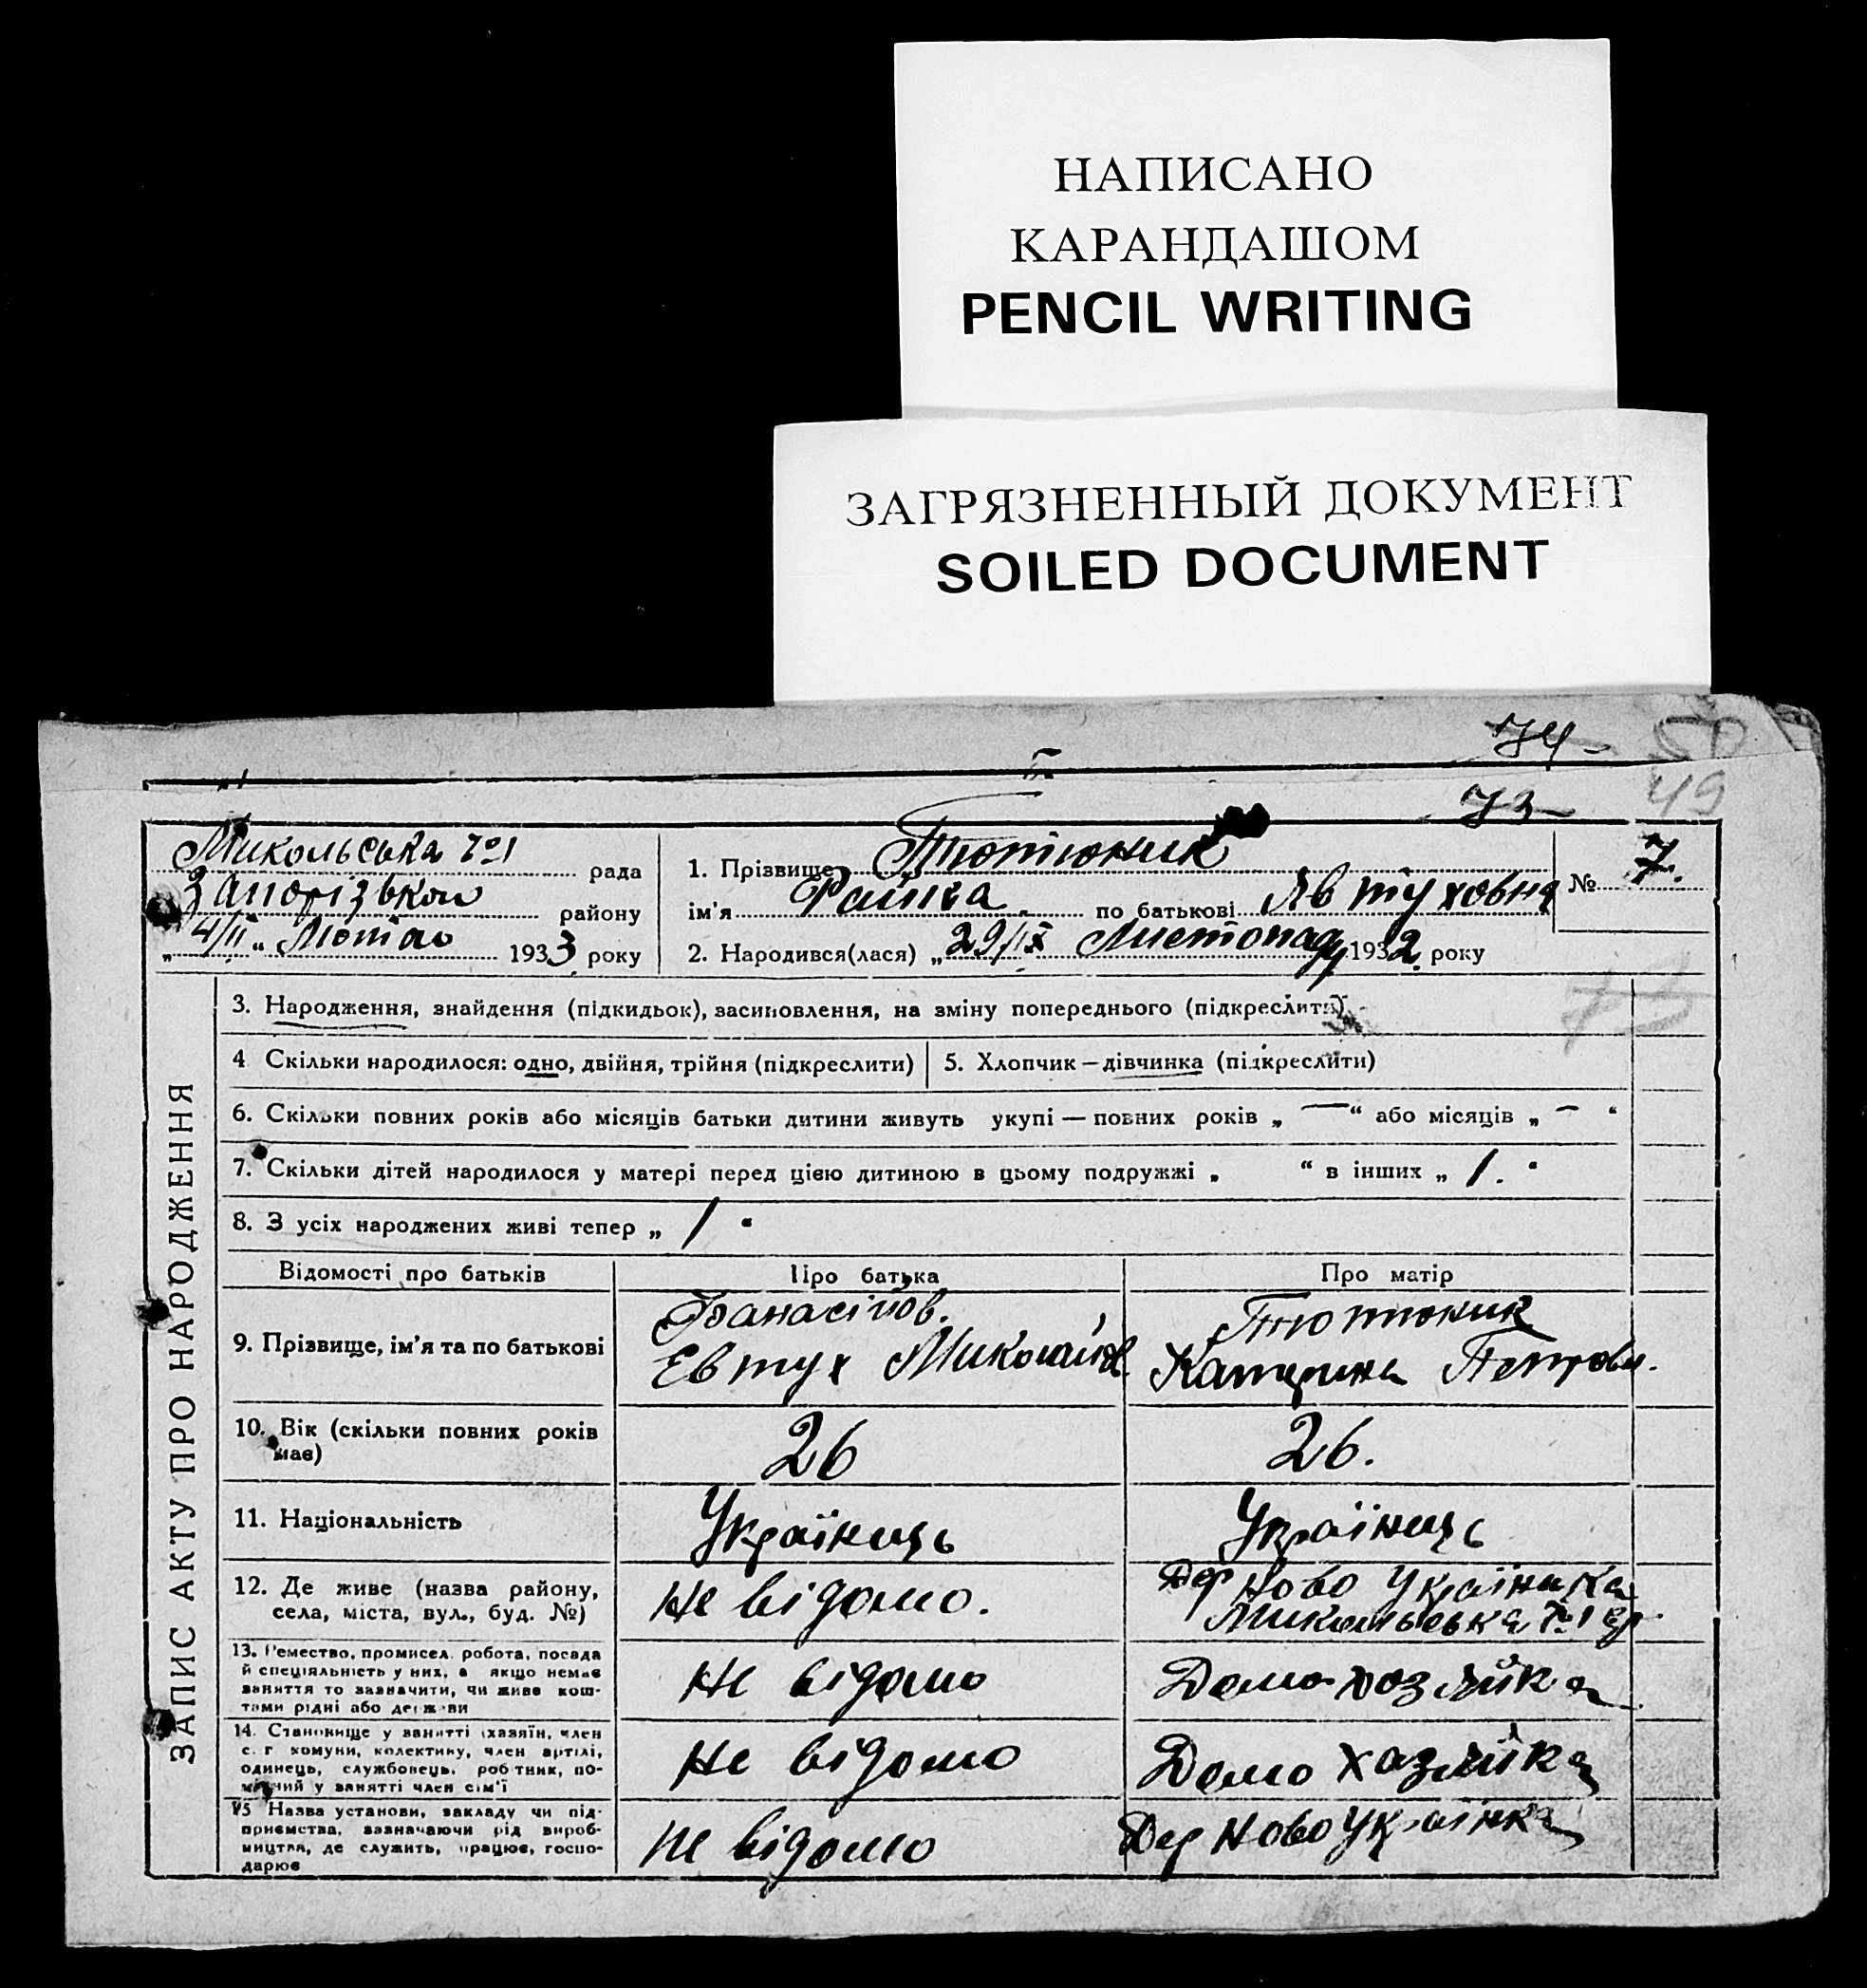 НАПИСАНО
КАРАНДАШОМ
PENCIL WRITING
ЗАГРЯЗНЕННЫЙ ДОКУМЕНТ
SOILED DOCUMENT
74 50
73 49
ЗАПИС АКТУ ПРО НАРОДЖЕННЯ
Микольська №1 рада
Запорізькой району
„4/II“ Лютого 1933 року
1. Прізвище Тютюник
ім'я Раїнка по батькові Явтуховна
№ 7.
2. Народився(лася) „29/IX Листопаду 1932 року
73
3. Народження, знайдення (підкидьок), засиновлення, на зміну попереднього (підкреслити)
4 Скільки народилося: одно, двійня, трійня (підкреслити) 5. Хлопчик – дівчинка (підкреслити)
6. Скільки повних років або місяців батьки дитини живуть укупі — повних років „ — “ або місяців „ — “
7. Скільки дітей народилося у матері перед цією дитиною в цьому подружжі „ “ в інших „ 1. “
8. З усіх народжених живі тепер „ 1 “
Відомості про батьків Про батька Про матір
9. Прізвище, ім'я та по батькові
Евтух Миколайов.
Тютюник
Катерина Петровн.
10. Вік (скільки повних років має) 26 26.
11. Національність Українець Українець
12. Де живе (назва району,
села, міста, вул., буд. №)
Не відомо.
Дер Ново Українка
Микольська №1 с/р.
13. Ремество, промисел, робота, посада
й спеціяльність у них, а якщо немає
заняття то зазначити, чи живе кош-
тами рідні або держави
Не відомо
Домохозяйка
14. Становище у занятті (хазяїн, член
с. г комуни, колективу, член артілі,
одинець, службовець, робітник, по-
мічний у занятті член сім'ї
Не відомо
Домо хазяйка
15 Назва установи, закладу чи під-
приємства, зазначаючи рід вироб-
ництва, де служить, працює, госпо-
дарює
Не відомо
Дер Ново Українка